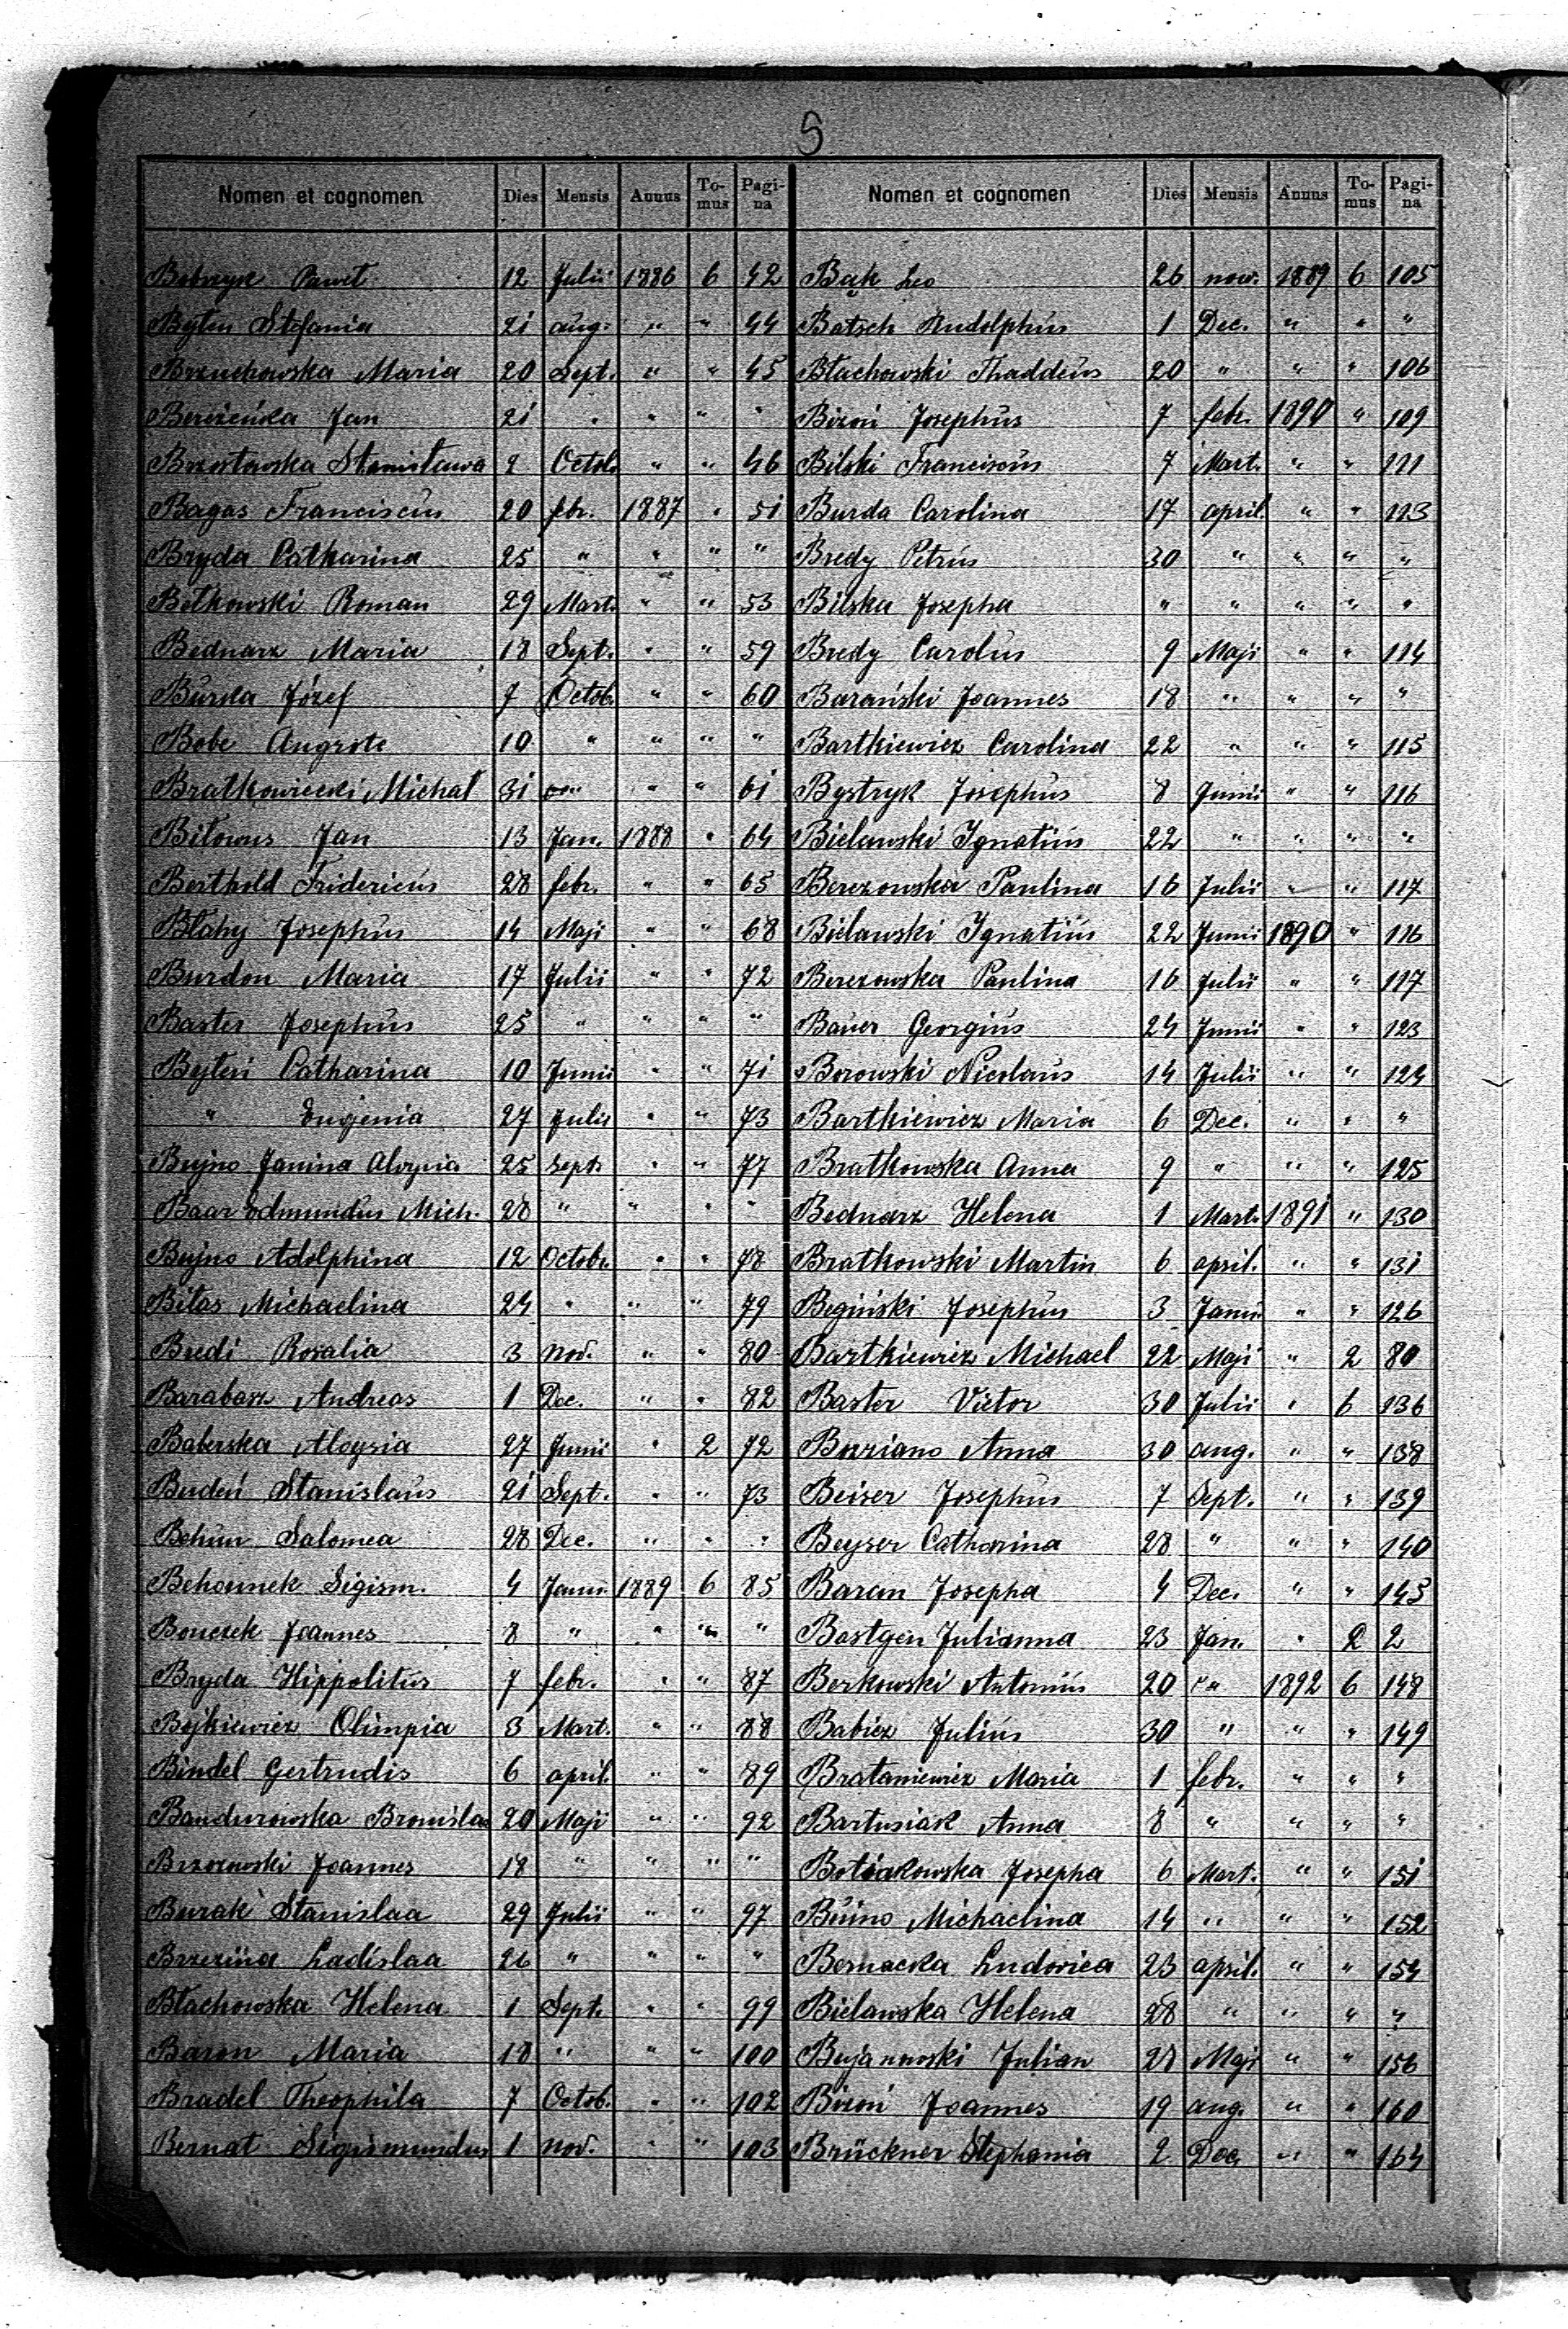 5
Nomen et cognomen Dies Mensis Annus To-mus Pagi-na
Bobryk Paweł 12 Julii 1886 6 42
Byten Stefania 21 aug. " " 44
Brzuchowska Maria 20 Sept. " " 45
Bereżeńka Jan 21 " " " "
Brzostowska Stanisława 2 Octob. " " 46
Bagas Franciscus 20 febr. 1887 " 51
Bryda Catharina 25 " " " "
Bełkowski Roman 29 Mart. " " 53
Bednarz Maria 18 Sept. " " 59
Burka Józef 7 Octob. " " 60
Bobe Augrste 10 " " " "
Bratkowiecki Michał 31 " " 61
Biłowus Jan 13 Jan. 1888 " 64
Berthold Fridericus 28 febr. " " 65
Błahy Josephus 14 Maji " " 68
Burdon Maria 17 Julii " " 72
Baster Josephus 25 " " " "
Byteń Catharina 10 Junii " " 71
" Eugenia 27 Julii " " 73
Bujno Janina Aloysia 25 Sept. " " 77
Baar Edmundus Mich. 28 " " " "
Bujno Adolphina 12 Octobr. " " 78
Bitas Michaelina 24 " " " 79
Bredi Rosalia 3 nov. " " 80
Barabasz Andreas 1 Dec. " " 82
Baberska Aloysia 27 Junii " 2 72
Budeń Stanislaus 21 Sept. " " 73
Behun Salomea 28 Dec. " " "
Behounek Sigism. 4 Janu. 1889 6 85
Bouczek Joannes 8 " " " "
Bryda Hippolitus 7 febr. " " 87
Bojkiewicz Olimpia 3 Mart. " " 88
Bindel Gertrudis 6 april. " " 89
Bandurowska Bronisla 20 Maji " " 92
Brzozowski Joannes 18 " " " "
Burak Stanislaa 29 Julii " " 97
Brzezina Ladislaa 26 " " " "
Błachowska Helena 1 Sept. " " 99
Baron Maria 18 " " " 100
Bradel Theophila 7 Octob. " " 102
Bernat Sigismundus 1 nov. " " 103
Nomen et cognomen Dies Mensis Annus To-mus Pagi-na
Bąk Leo 26 now. 1889 6 105
Batsch Rudolphus 1 Dec. " " "
Błachowski Thaddeus 20 " " " 106
Bizoń Josephus 7 febr. 1890 " 109
Bilski Franciscus 7 Mart. " " 111
Burda Carolina 17 april. " " 113
Bredy Petrus 30 " " " "
Bilska Josepha " " " " "
Bredy Carolus 9 Maji " " 114
Barański Joannes 18 " " " "
Bartkiewicz Carolina 22 " " " 115
Bystryk Josephus 8 Junii " " 116
Bielawski Ignatius 22 " " " "
Berezowska Paulina 16 Julii " " 117
Bielawski Ignatius 22 Junii 1890 " 116
Berezowska Paulina 16 Julii " " 117
Bauer Georgius 24 Junii " " 123
Borowski Nicolaus 14 Julii " " 124
Bartkiewicz Maria 6 Dec. " " "
Bratkowska Anna 9 " " " 125
Bednarz Helena 1 Mart. 1891 " 130
Bratkowski Martin 6 april. " " 131
Begiński Josephus 3 Janu. " " 126
Bartkiewicz Michael 22 Maji " 2 80
Baster Victor 30 Julii " 6 136
Bozziano Anna 30 aug. " " 138
Beiser Josephus 7 Sept. " " 139
Beyser Catharina 28 " " " 140
Baran Josepha 4 Dec. " " 145
Bastgen Julianna 23 Jan. " 2 2
Berkowski Antonius 20 " 1892 6 148
Babicz Julius 30 " " " 149
Brataniewicz Maria 1 febr. " " "
Bartusiak Anna 8 " " " "
Josepha 6 Mart. " " 151
Buino Michaelina 14 " " " 152
Bernacka Ludovica 23 april. " " 154
Bielawska Helena 28 " " " "
Bujanowski Julian 28 Maji " " 156
Bizoń Joannes 19 aug. " " 160
Brückner Stephania 2 Dec. " " 164